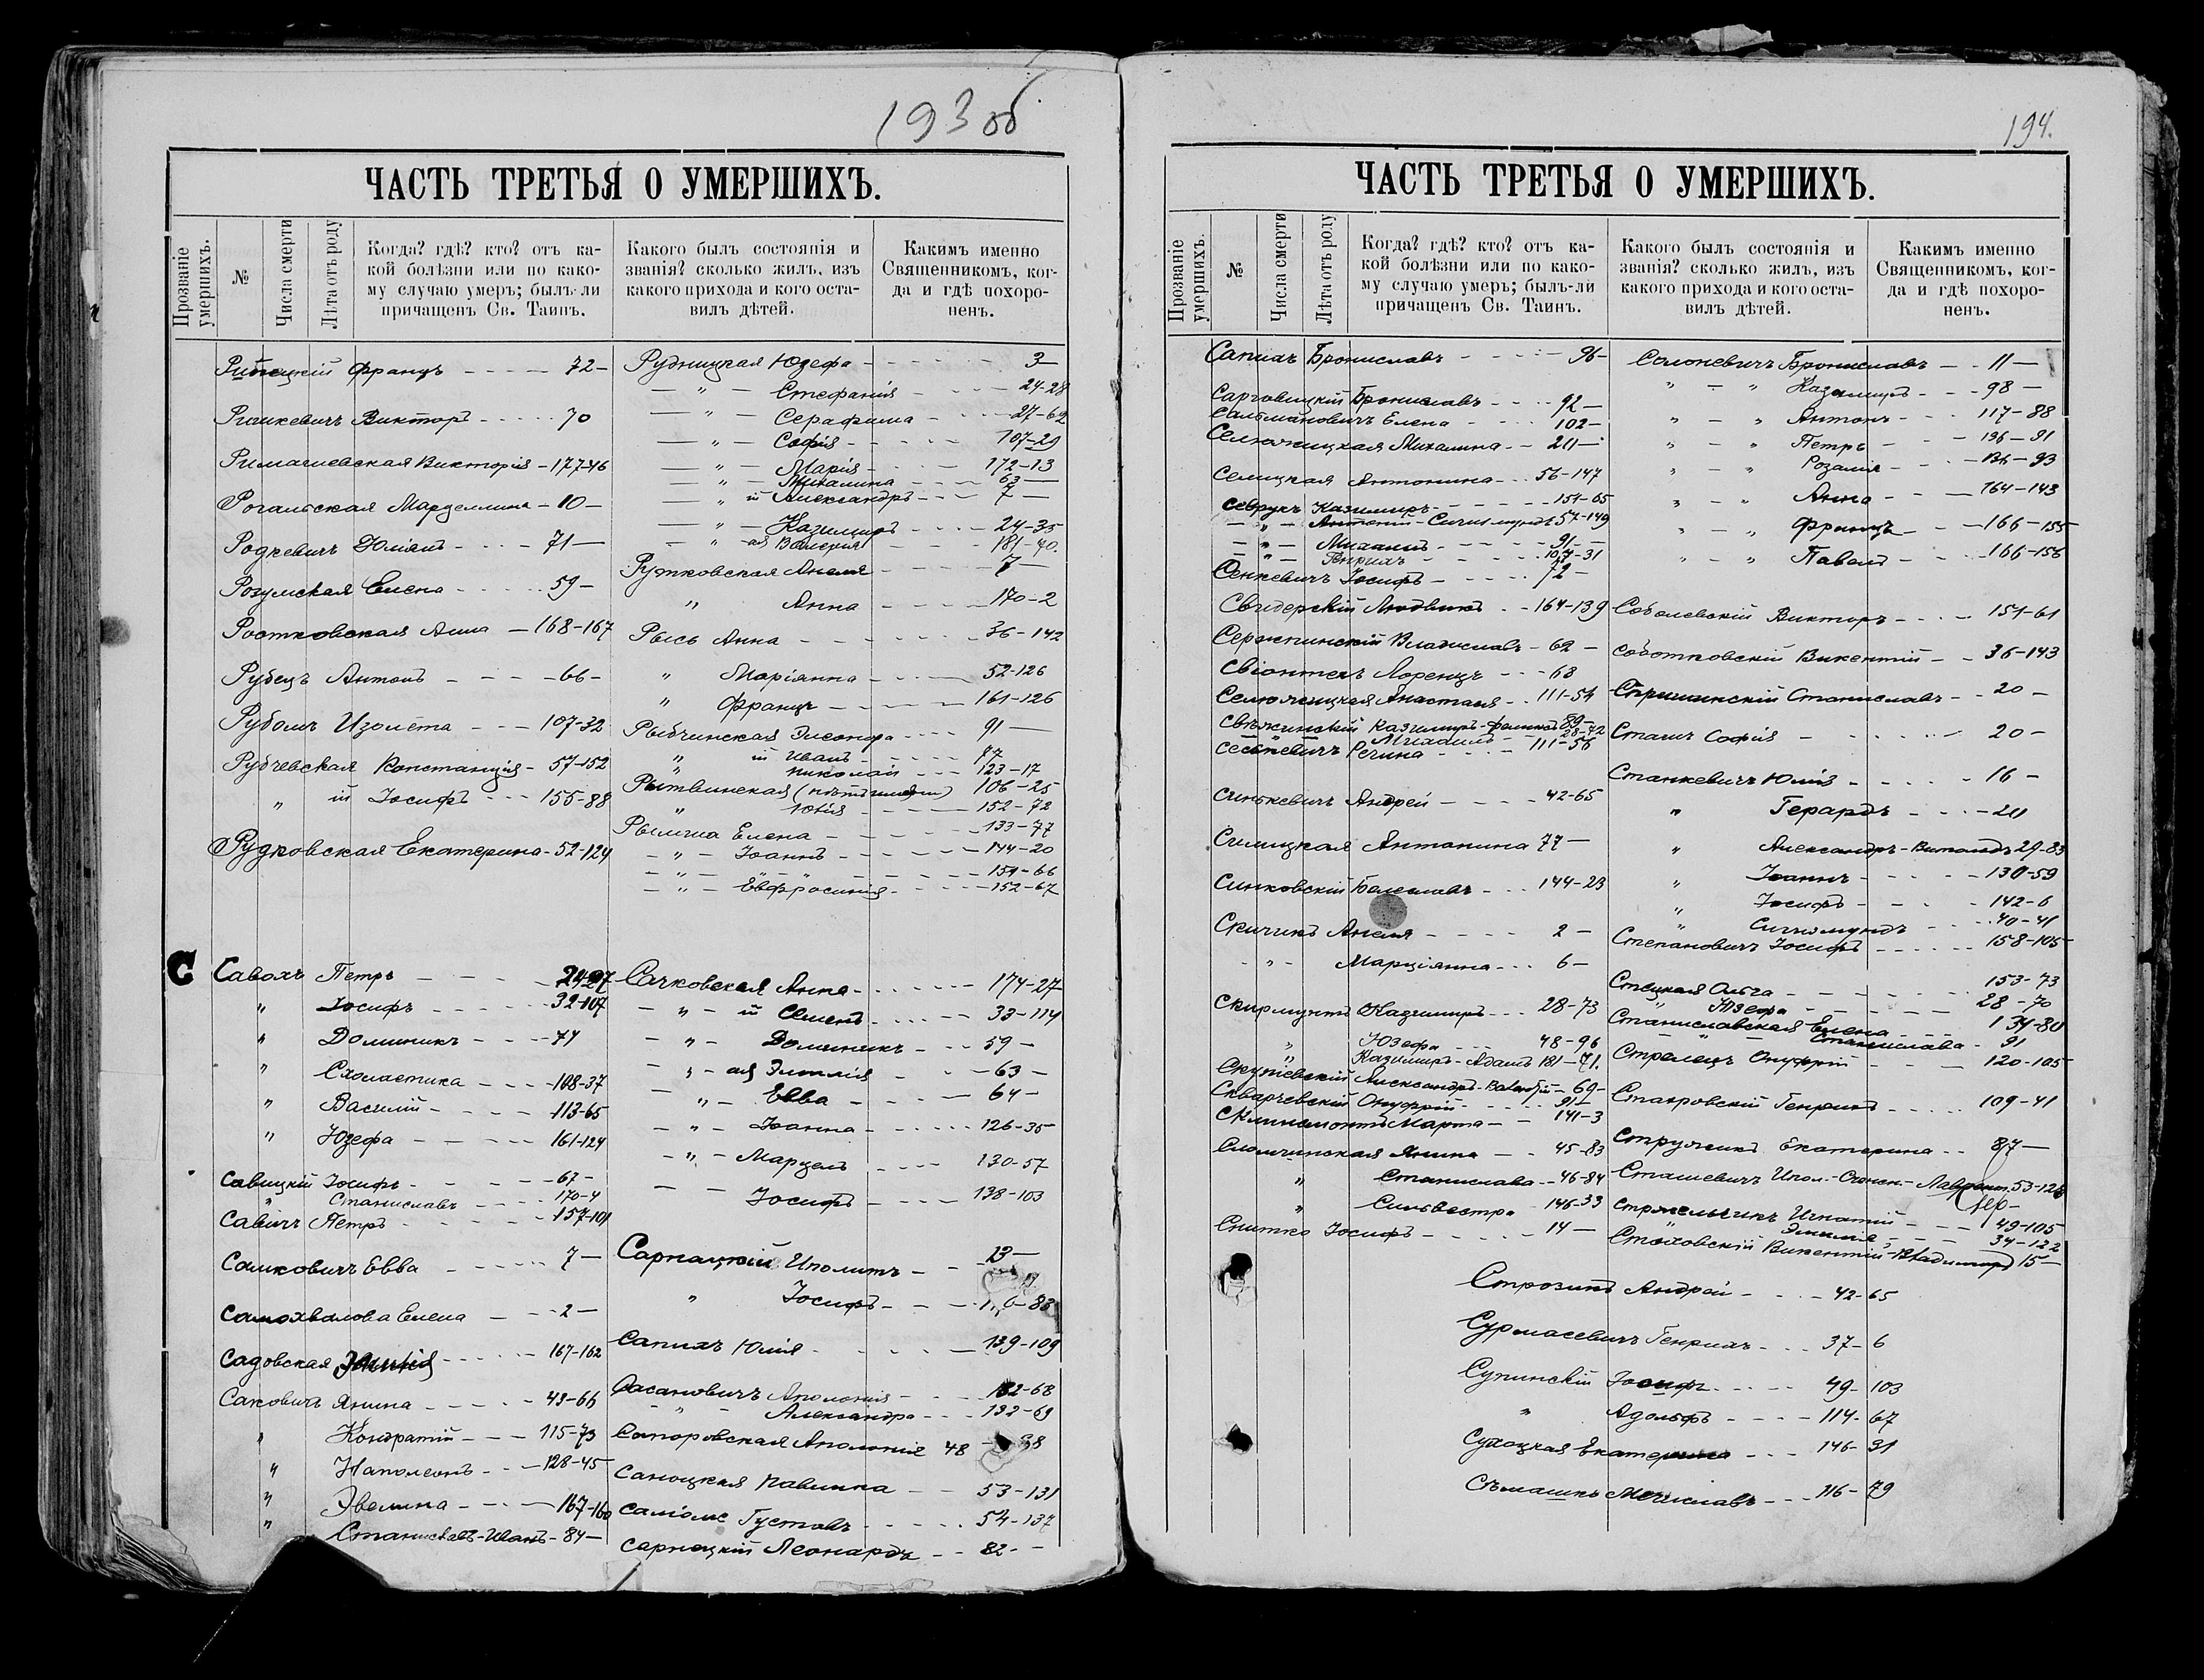 193 об
ЧАСТЬ ТРЕТЬЯ О УМЕРШИХЪ.
Прозваніе умершихъ.
№
Числа смерти
Лѣта отъ роду
Когда? гдѣ? кто? отъ ка-
кой болѣзни или по како-
му случаю умеръ; былъ-ли
причащенъ Св. Таинъ.
Какого былъ состоянія и
званія? сколько жилъ, изъ
какого прихода и кого оста-
вилъ дѣтей.
Какимъ именно
Священникомъ, ког-
да и гдѣ похоро-
ненъ.
Францъ - - - - 72 -
Викторъ - - - - 70
Викторія - 177-46
Рогальская Марцеллина - 10 -
Родкевичъ Юліанъ - - - 71 —
Розумская Елена - - - - 59 -
Ростковская Анна — 168-167
Рубецъ Антонъ - - - - 66 -
Изолета - - - 107-32
Рубчевская Констанція - 57-152
" ій Іосифъ - - - 155-88
Рудковская Екатерина - 52-124
Рудницкая Юзефа - - - - 3 —
— " — Стефанія - - - 24-28
— " — Серафима - - - 27-62
— " — Софія - - - - 107-29
— " — Марія - - - 172-13
— " — Михалина - - - 63 —
— " ій Александръ - - - 7 —
— " — Казимиръ - - - 24-35
— " — ая Валерія - - - 181-70.
Рутковская Анеля - - - - 7 —
" Анна - - - - 170-2
Рысь Анна - - - - - 36-142
" Маріянна - - - 52-126
" Францъ - - - - 161-126
Элеонора - - - 91 —
" ій Иванъ - - - 77
" николай - - - 123-17
106-25
" Юлія - - - - 152-72
Елена - - - - 133-77
— " — Іоаннъ - - - - 144-20
— " — " — - - - - 151-66
— " — Евфросинія - - - - 152-67
С
Савохъ Петръ - - - 24-27
" Іосифъ - - - - 32-107
" Доминикъ - - - 74
" Схоластика - - - 108-37
" Василій - - - - 113-65
" Юзефа - - - - 161-124
Савицкій Іосифъ - - - - 67 -
" Станиславъ - - - 170-4
Савичъ Петръ - - - - 157-101
Самковичъ Евва - - - - 7 —
Самохвалова Елена — - - 2 —
Садовская - - - - 167-162
Саковичъ Янина - - - - 43-66
" Кондратій - - - 115-73
" Наполеонъ - - - 128-45
" Эвелина - - - 167-160
" Станиславъ-Иванъ - 84 —
Сачковская Анна - - - - 174-27
— " — ій Семенъ - - - - 33-114
— " — Доминикъ - - - 59 -
— " — ая Эмилія - - - 63 -
— " — Евва - - - - 64 -
— " — Іоанна - - - - 126-35
— " — Марцелъ - - - 130-57
— — Іосифъ - - - - 138-103
Сарнацкій Иполитъ - - 23 —
" Іосифъ - - - 83
Сапихъ Юлія - - - - 139-109
Аполонія - - - 132-68
— " — Александра - - - 132-69
Сапоровская Аполонія 48 - 98
Саноцкая Павлина - - 53-131
Густавъ - - - - 54-137
Сарнацкій Леонардъ - - 82 - -
194.
ЧАСТЬ ТРЕТЬЯ О УМЕРШИХЪ.
Прозваніе умершихъ.
№
Числа смерти
Лѣта отъ роду
Когда? гдѣ? кто? отъ ка-
кой болѣзни или по како-
му случаю умеръ; былъ-ли
причащенъ Св. Таинъ.
Какого былъ состоянія и
званія? сколько жилъ, изъ
какого прихода и кого оста-
вилъ дѣтей.
Какимъ именно
Священникомъ, ког-
да и гдѣ похоро-
ненъ.
Сапихъ Брониславъ - - - - 96 -
Брониславъ - - - 92 —
Сальмановичъ Елена - - - 102 -
Михалина - - 20 —
Селицкая Антонина - - 56-147
Севрукъ Казимиръ - - - - 151-65
57-149
— " — Михаилъ - - - - 91 -
— " — Генрихъ - - - - 107-31
Сенкевичъ Іосифъ - - - - 72 -
Свидерскій Людвикъ - - 164-139
Сержпинскій Владиславъ - 62 -
Лоренцъ - - 68
Анастасія - - 111-54
Казимиръ- 89 -
" Михаилъ - - 28-42
Регина - - - 111-56
Синькевичъ Андрей - - - - 42-65
Антонина 77 —
Синковскій Болеславъ - - - 144-23
Скичикъ Анеля - - - - 2 -
- " - Марціанна - - - 6 -
Скирмунтъ Казимиръ - - - 28-73
" Юзефа - - - 48-96
" Казимиръ-Адамъ 181-71.
Александръ- - 69 -
Скварчевскій Онуфрій - - - 91 —
Марта - - 141-3
Сломчинская Янина - - - 45-83
" Станислава - - 46-84
" Сильвестра - 146-33
Снитко Іосифъ - - - - - 14 —
Солоневичъ Брониславъ - - 11 —
" - " Казимиръ - - - 98 —
" - " Антонъ - - - 117-88
" - " Петръ - - - 136-91
" - " Розалія - - - 136-93
" - " Анна - - - 164-143
" - " Францъ - - - 166-155
" - " Павелъ - - - 166-156
Соболевскій Викторъ - - - 151-61
Соботковскій Викентій - - 36-143
Станиславъ - - 20 -
Софія - - - - - 20 -
Станкевичъ Юлія - - - - 16 -
" Герардъ - - - 20
" Александръ-Витольдъ 29-83
" Іоаннъ - - - - 130-59
" Іосифъ - - - 142-6
" Сигизмундъ - - - 40-41
Степановичъ Іосифъ - - - - 158-105
Стецкая Ольга - - - - - 153-73
" Юзефа - - - - 28-70
Станиславская Елена - - - 134-80
" Станислава - 91
Стрелецъ Онуфрій - - - 120-105
Генрихъ - - - - 109-41
Екатерина - - 87 —
Сташевичъ 53-128
Игнатій - - - 49-105
" Эмилія - - - 34-122
Стаховскій Викентій-Владиміръ 15 —
Андрей - - - - 42-65
Сурмасевичъ Генрихъ - - - 37-6
Супинскій Іосифъ - - - - 49-103
" Адольфъ - - - - 114-67
Сухоцкая Екатерина - - - 146-31
Съмашко Мечиславъ - - - 116-79